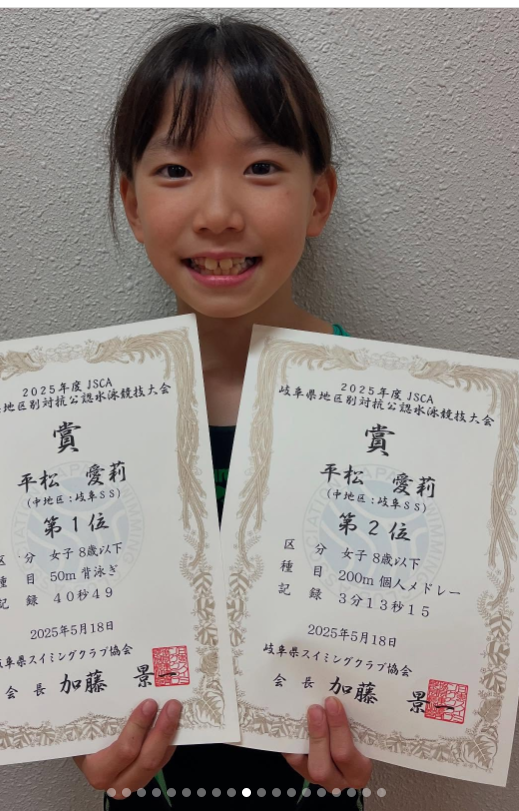 2025年度 JSCA
県地区別対抗公認水泳競技大会
賞
平松 愛莉
(中地区:岐阜SS)
第1位
区 分 女子 8歳以下
種 目 50m 背泳ぎ
記 録 40秒49
2025年5月18日
岐阜県スイミングクラブ協会
会 長 加藤 景一
2025年度 JSCA
岐阜県地区別対抗公認水泳競技大会
賞
平松 愛莉
(中地区:岐阜SS)
第2位
区 分 女子 8歳以下
種 目 200m 個人メドレー
記 録 3分13秒15
2025年5月18日
岐阜県スイミングクラブ協会
会 長 加藤 景一